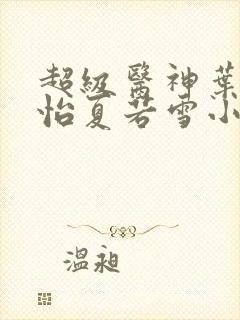 超級醫神葉
怡夏若雪小
溫昶